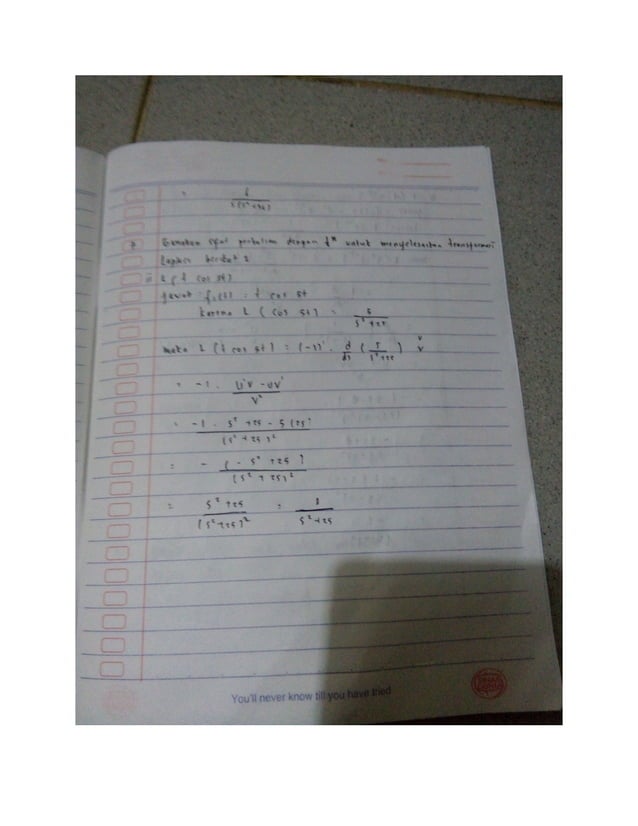 = 6 / s(s²+36)
Gunakan sifat perkalian dengan tⁿ untuk menyelesaikan transformasi
Laplace berikut :
L { t cos 5t }
Jawab : f(t) : t cos 5t
karena L { cos 5t } = s / s²+25
maka L { t cos 5t } = (-1)' . d/ds ( s / s²+25 ) u v
= -1 . u'v - uv' / v²
= -1 . s² +25 - s (2s) / (s² + 25)²
= - ( - s² +25 ) / (s² + 25)²
= s² +25 / (s²+25)² = 1 / s²+25
You'll never know till you have tried